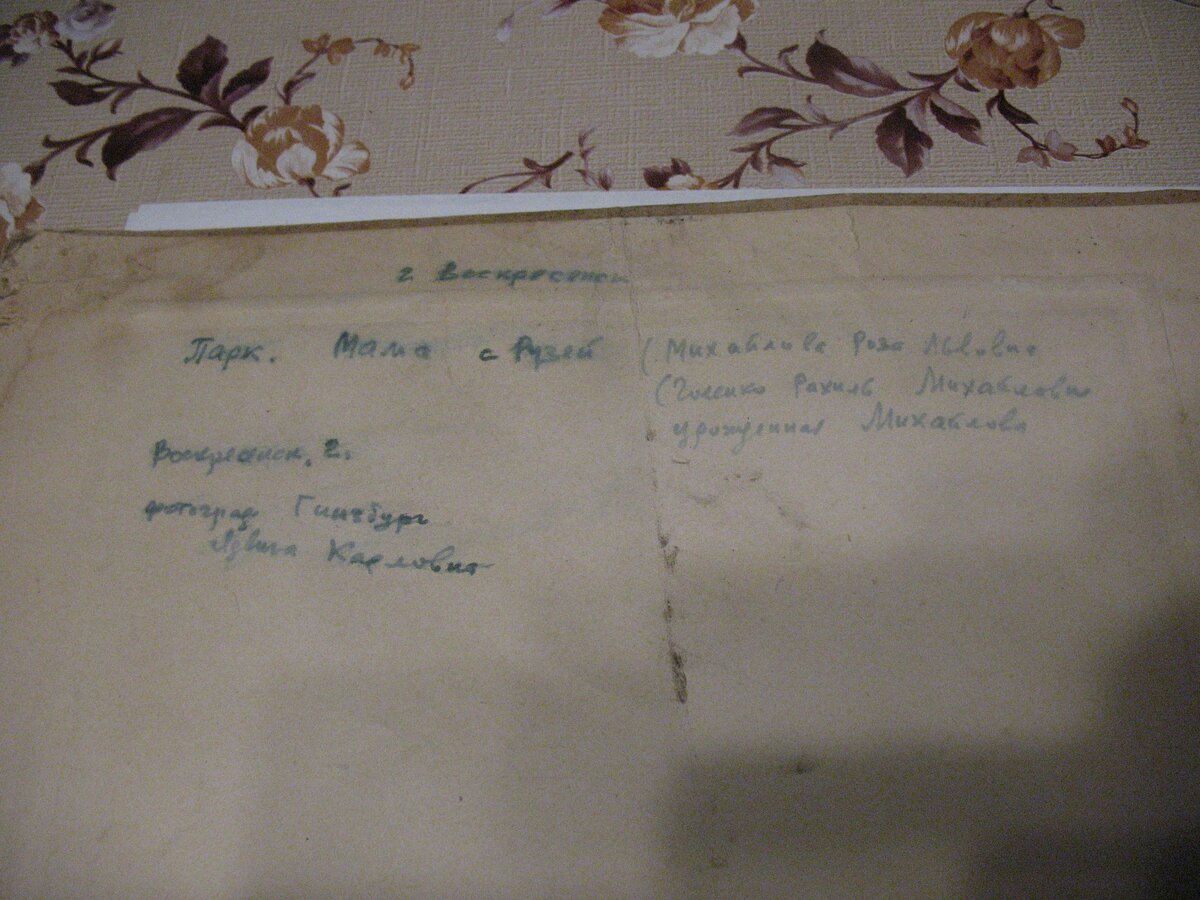 г Воскресенск
Парк. Мама с Рузей (Михайлова Роза Львовна
Рахиль Михайловна
урожденная Михайлова
Воскресенск. г.
фотограф Гинзбург
Карлович